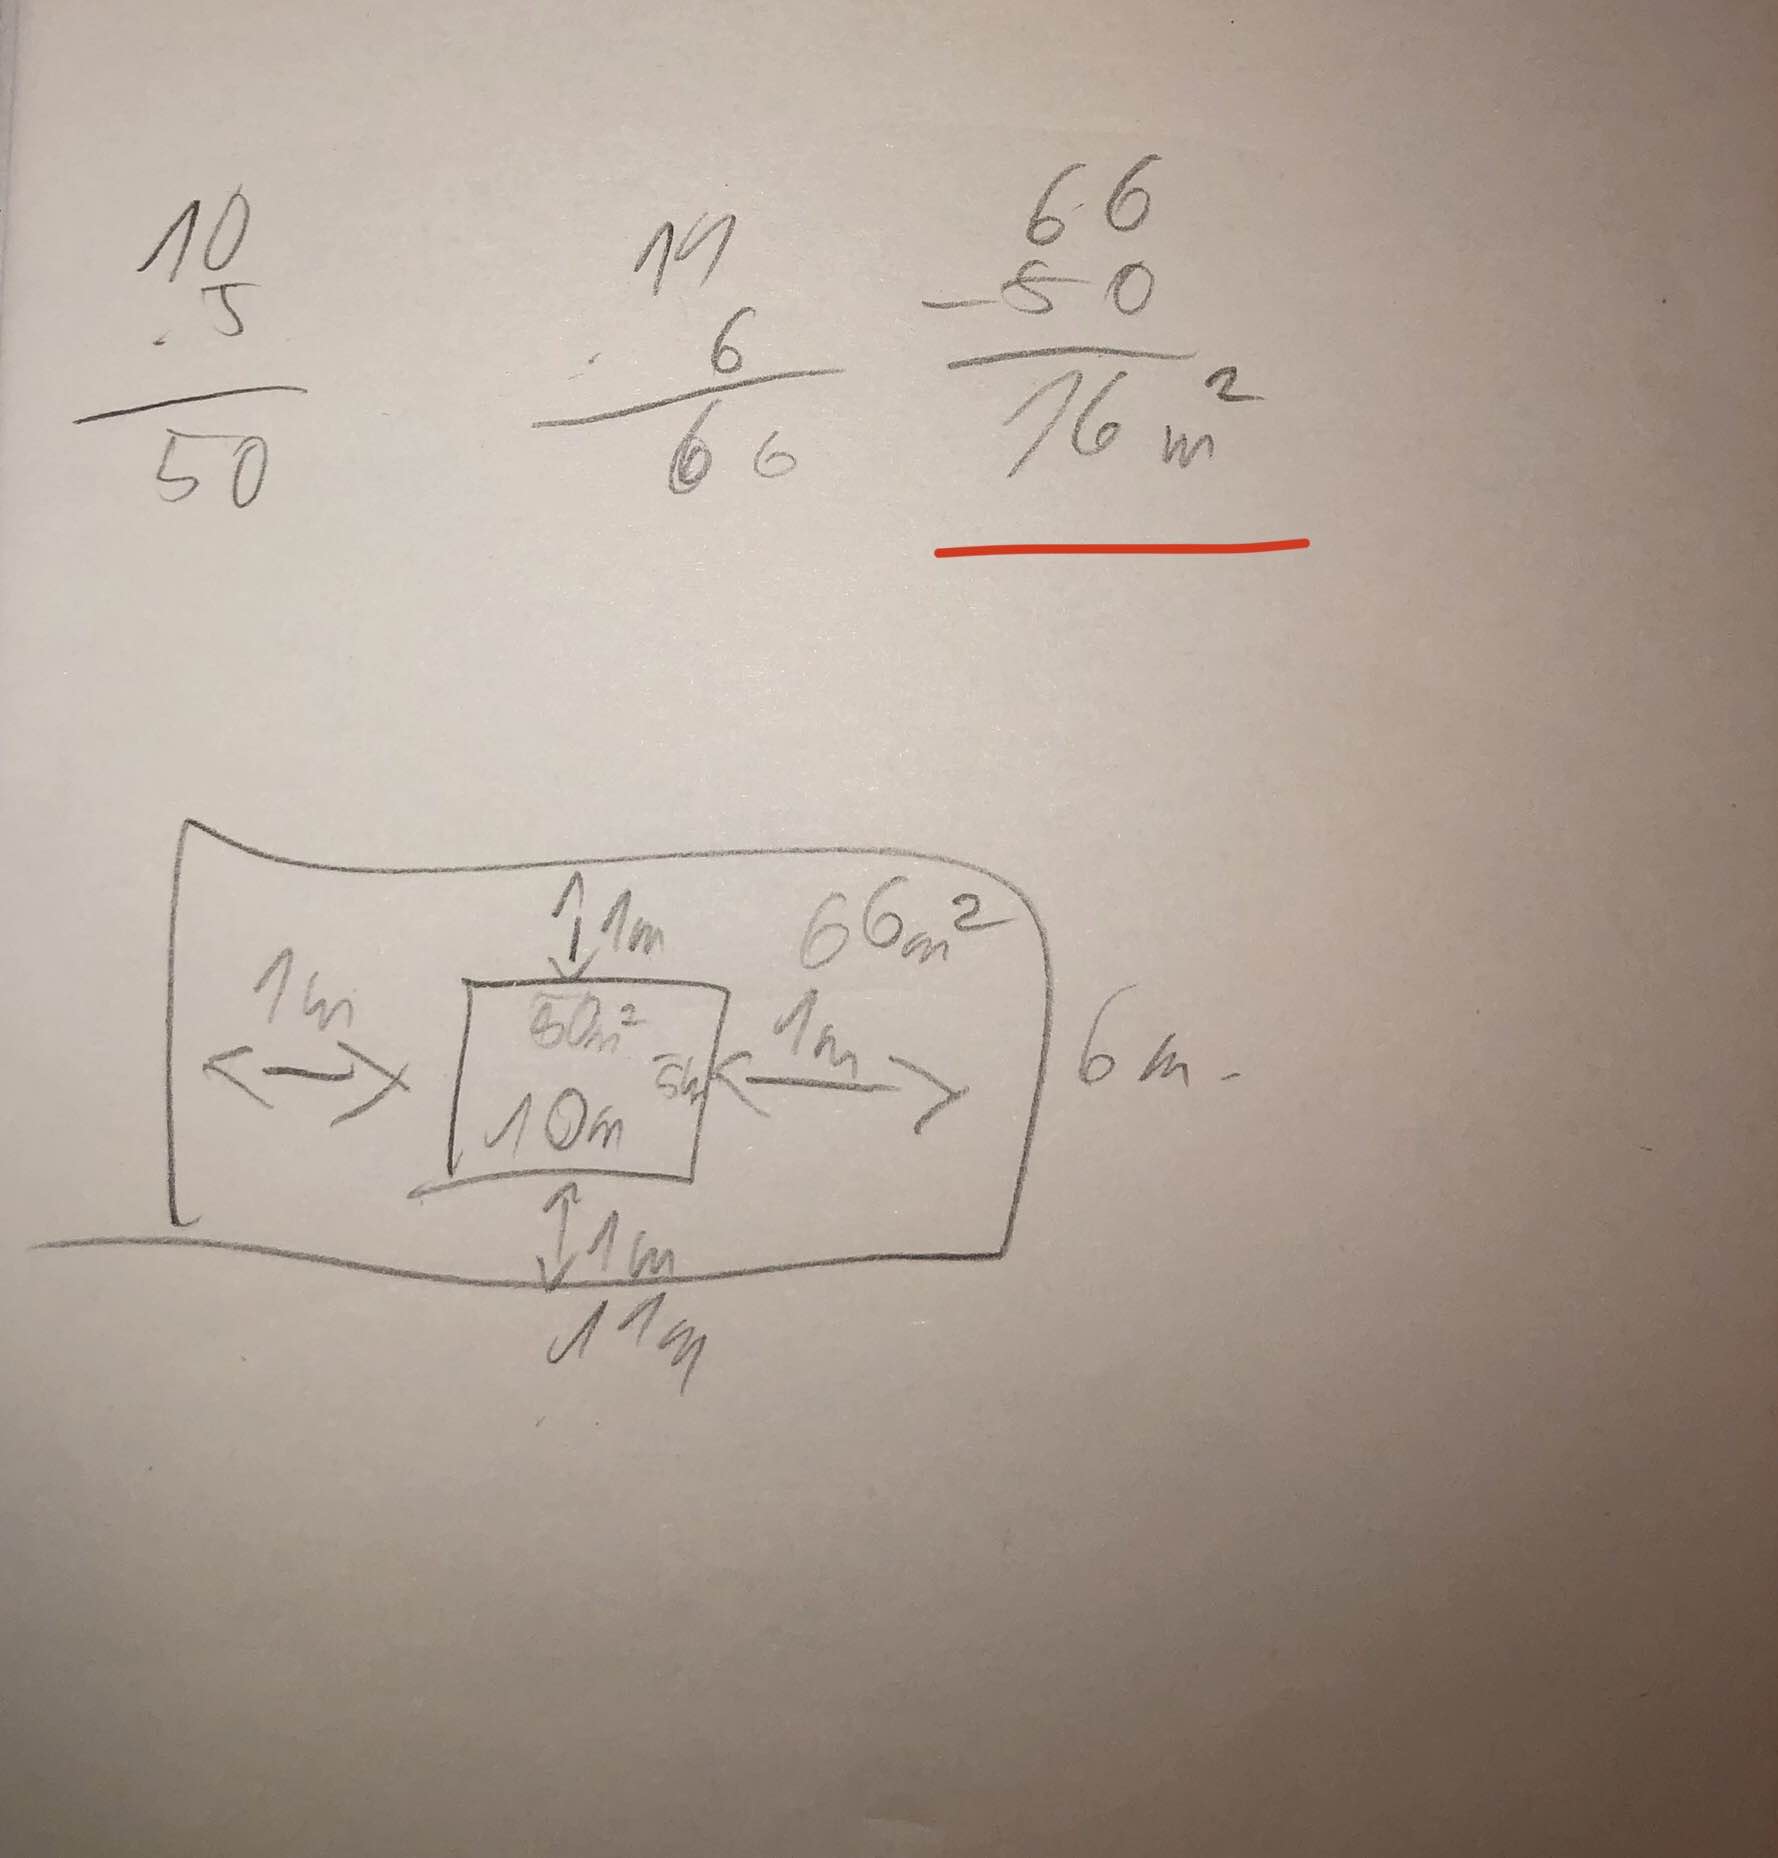 10
. 5
50
11
. 6
66
66
- 50
16 m²
1m
66m²
1m
50m²
1m
5m
10m
6m.
1m
11m